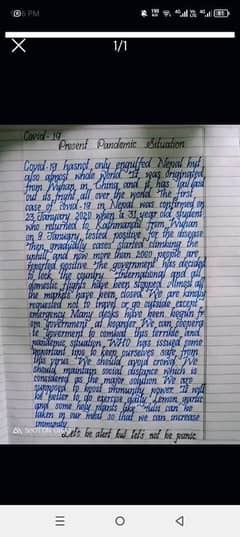 1/1
Covid-19
Present Pandemic Situation
Covid-19 hasnot only engulfed Nepal but
also almost whole World. It was originated
from Wuhan in China and it has spread
out its fright all over the world. The first
case of Covid-19 in Nepal was confirmed on
23 January 2020 when a 31 year old student
who returned to Kathmandu from Wuhan
on 9 January tested positive for the disease
Then gradually cases started climbing the
uphill and now more than 2000 people are
reported positive. The government has decided
to lock the country. International and all
domestic flights have been stopped. Almost all
the markets have been closed. We are kindly
requested not to travel or go outside except
emergency. Many desks have been begun
government at boarder. We can
government to combat this terrible and
pandemic situation. WHO has issued some
important tips to keep ourselves safe from
this virus. We should avoid crowd. We
should maintain social distance which is
considered as the major solution. We are
supposed to boost immunity power. It will
be better to do exercise daily. Lemon, garlic
and some holy plants like tulsi can be
taken in our meal so that we can increase
immunity.
Let's be alert but let's not be panic.